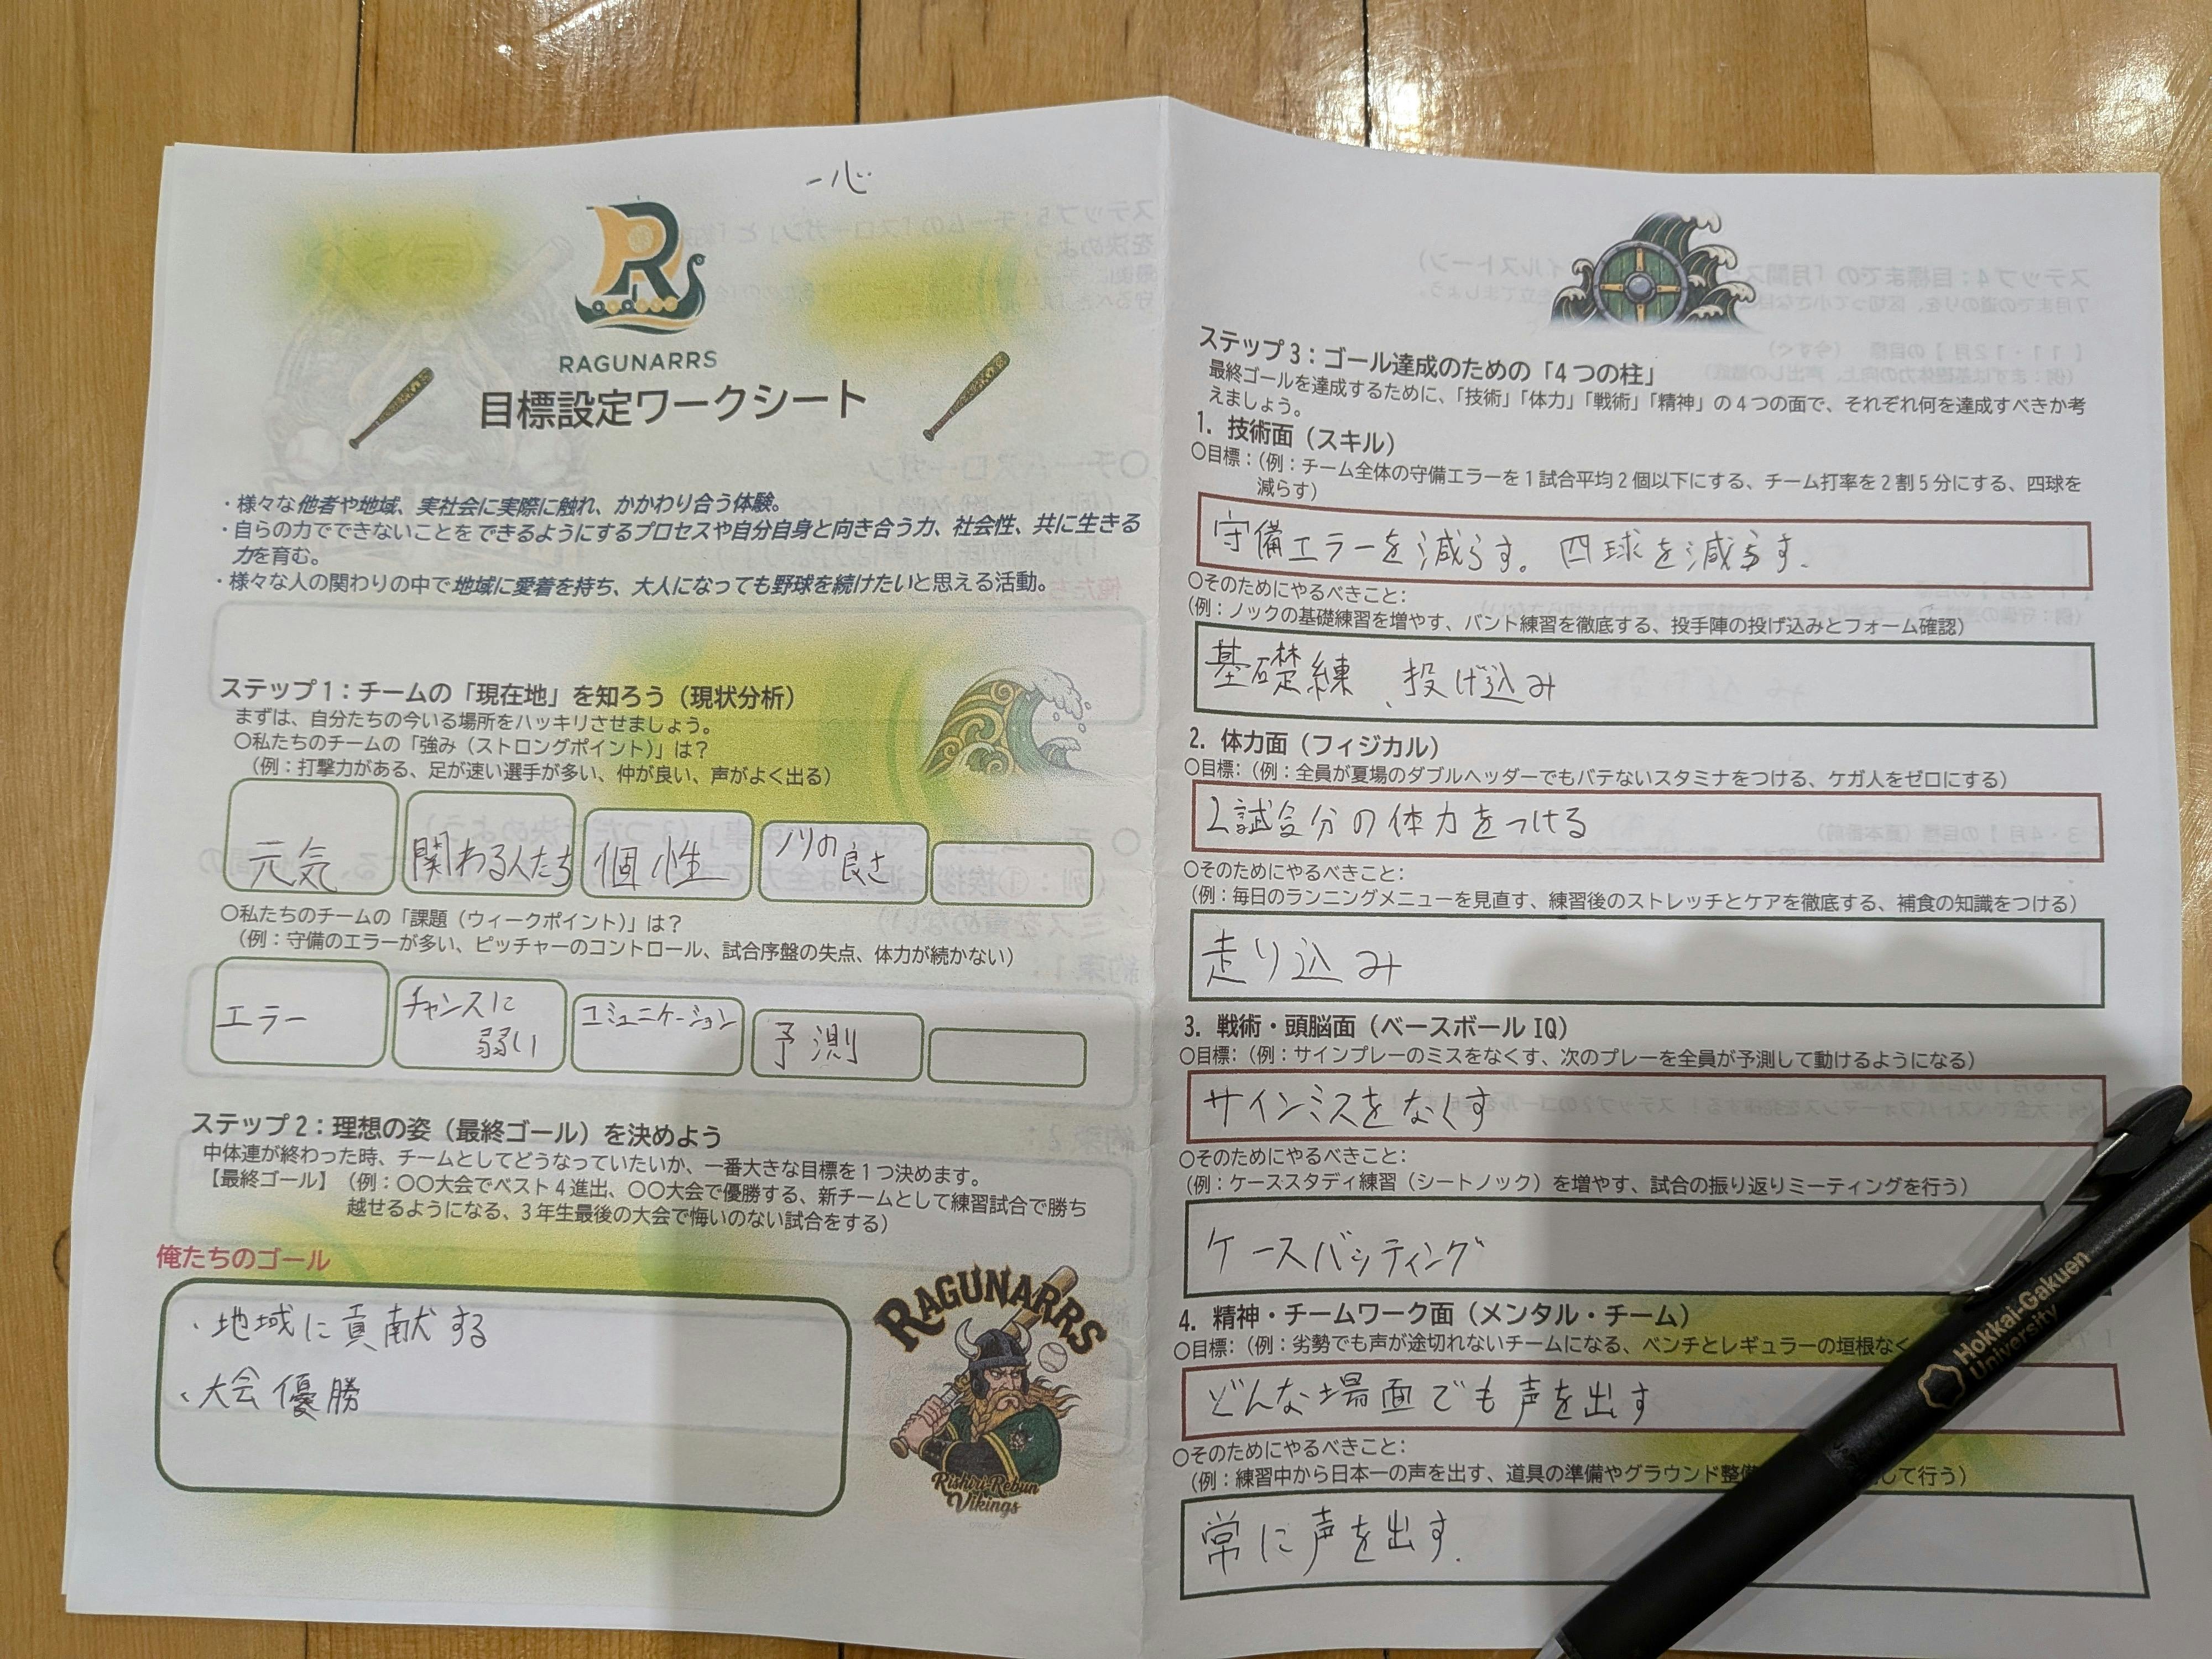 一心
RAGUNARRS
目標設定ワークシート
・様々な他者や地域、実社会に実際に触れ、かかわり合う体験。
・自らの力でできないことをできるようにするプロセスや自分自身と向き合う力、社会性、共に生きる
力を育む。
・様々な人の関わりの中で地域に愛着を持ち、大人になっても野球を続けたいと思える活動。
ステップ1：チームの「現在地」を知ろう（現状分析）
まずは、自分たちの今いる場所をハッキリさせましょう。
○私たちのチームの「強み（ストロングポイント）」は？
（例：打撃力がある、足が速い選手が多い、仲が良い、声がよく出る）
元気
関わる人たち
個性
ノリの
良さ
○私たちのチームの「課題（ウィークポイント）」は？
（例：守備のエラーが多い、ピッチャーのコントロール、試合序盤の失点、体力が続かない）
エラー
チャンスに
弱い
コミュニケーション
予測
ステップ2：理想の姿（最終ゴール）を決めよう
中体連が終わった時、チームとしてどうなっていたいか、一番大きな目標を1つ決めます。
【最終ゴール】（例：○○大会でベスト4進出、○○大会で優勝する、新チームとして練習試合で勝ち
越せるようになる、3年生最後の大会で悔いのない試合をする）
俺たちのゴール
・地域に貢献する
・大会優勝
RAGUNARRS
Rishiri-Rebun
Vikings
ステップ3：ゴール達成のための「4つの柱」
最終ゴールを達成するために、「技術」「体力」「戦術」「精神」の4つの面で、それぞれ何を達成すべきか考
えましょう。
1. 技術面（スキル）
○目標：（例：チーム全体の守備エラーを1試合平均2個以下にする、チーム打率を2割5分にする、四球を
減らす）
守備エラーを減らす。四球を減らす.
○そのためにやるべきこと：
（例：ノックの基礎練習を増やす、バント練習を徹底する、投手陣の投げ込みとフォーム確認）
基礎練、投げ込み
2. 体力面（フィジカル）
○目標：（例：全員が夏場のダブルヘッダーでもバテないスタミナをつける、ケガ人をゼロにする）
2試合分の体力をつける
○そのためにやるべきこと：
（例：毎日のランニングメニューを見直す、練習後のストレッチとケアを徹底する、補食の知識をつける）
走り込み
3. 戦術・頭脳面（ベースボールIQ）
○目標：（例：サインプレーのミスをなくす、次のプレーを全員が予測して動けるようになる）
サインミスをなくす
○そのためにやるべきこと：
（例：ケーススタディ練習（シートノック）を増やす、試合の振り返りミーティングを行う）
ケースバッティング
4. 精神・チームワーク面（メンタル・チーム）
○目標：（例：劣勢でも声が途切れないチームになる、ベンチとレギュラーの垣根なく
どんな場面でも声を出す
○そのためにやるべきこと：
（例：練習中から日本一の声を出す、道具の準備やグラウンド整備 して行う）
常に声を出す.
Hokkai-Gakuen
University